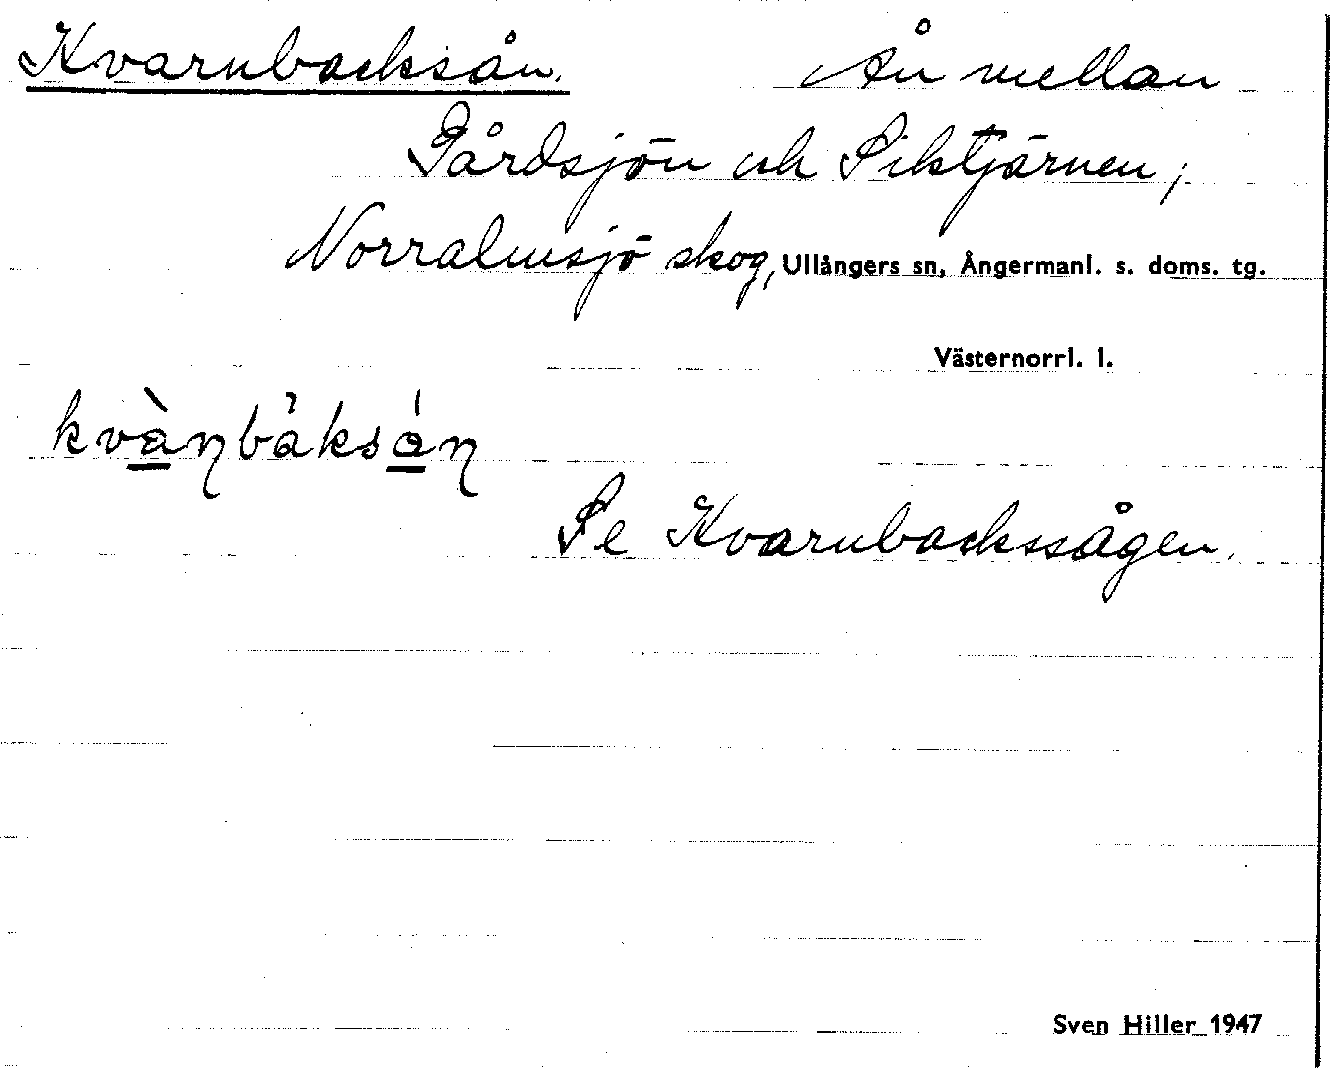 Kvarnbacksån. Ån mellan
Gårdsjön och Siktjärnen,
Norralmsjö skog, Ullångers sn, Ångermanl. s. doms. tg.
Västernorrl. l.
kvànbàksán
Se Kvarnbackssågen.
Sven Hiller 1947